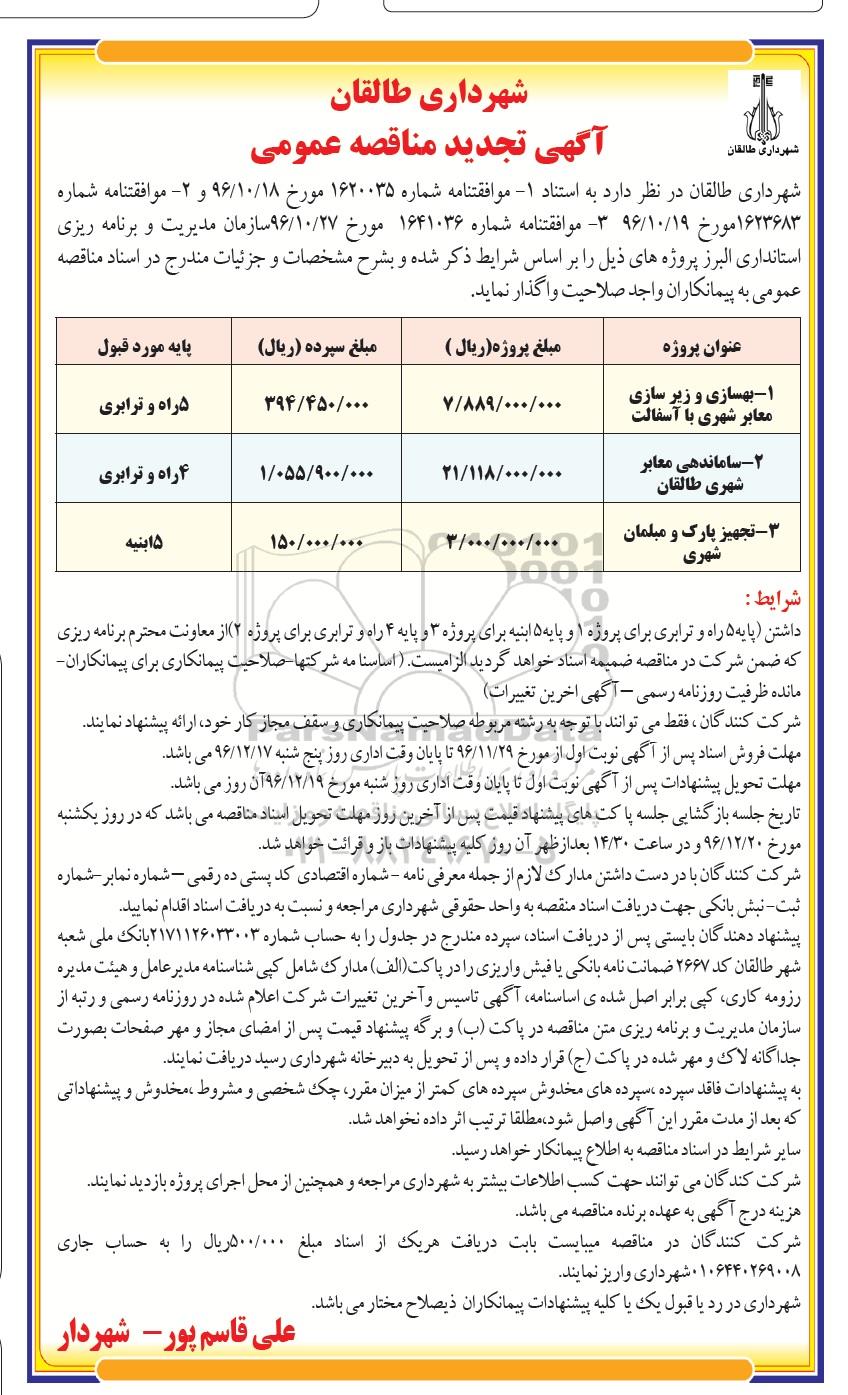 شهرداری طالقان
شهرداری طالقان
آگهی تجدید مناقصه عمومی
شهرداری طالقان در نظر دارد به استناد ۱- موافقتنامه شماره ۱۶۲۰۰۳۵ مورخ ۹۶/۱۰/۱۸ و ۲- موافقتنامه شماره
۱۶۲۳۶۸۳مورخ ۹۶/۱۰/۱۹ ۳- موافقتنامه شماره ۱۶۴۱۰۳۶ مورخ ۹۶/۱۰/۲۷سازمان مدیریت و برنامه ریزی
استانداری البرز پروژه های ذیل را بر اساس شرایط ذکر شده و بشرح مشخصات و جزئیات مندرج در اسناد مناقصه
عمومی به پیمانکاران واجد صلاحیت واگذار نماید.
عنوان پروژه مبلغ پروژه(ریال ) مبلغ سپرده (ریال) پایه مورد قبول
۱-بهسازی و زیر سازی
معابر شهری با آسفالت ۷/۸۸۹/۰۰۰/۰۰۰ ۳۹۴/۴۵۰/۰۰۰ ۵راه و ترابری
۲-ساماندهی معابر
شهری طالقان ۲۱/۱۱۸/۰۰۰/۰۰۰ ۱/۰۵۵/۹۰۰/۰۰۰ ۴راه و ترابری
۳-تجهیز پارک و مبلمان
شهری ۳/۰۰۰/۰۰۰/۰۰۰ ۱۵۰/۰۰۰/۰۰۰ ۵ابنیه
شرایط :
داشتن (پایه۵ راه و ترابری برای پروژه ۱ و پایه۵ ابنیه برای پروژه ۳ و پایه ۴ راه و ترابری برای پروژه ۲)از معاونت محترم برنامه ریزی
که ضمن شرکت در مناقصه ضمیمه اسناد خواهد گردید الزامیست. ( اساسنا مه شرکتها-صلاحیت پیمانکاری برای پیمانکاران-
مانده ظرفیت روزنامه رسمی –آگهی اخرین تغییرات)
شرکت کنندگان ، فقط می توانند با توجه به رشته مربوطه صلاحیت پیمانکاری و سقف مجاز کار خود، ارائه پیشنهاد نمایند.
مهلت فروش اسناد پس از آگهی نوبت اول از مورخ ۹۶/۱۱/۲۹ تا پایان وقت اداری روز پنج شنبه ۹۶/۱۲/۱۷ می باشد.
مهلت تحویل پیشنهادات پس از آگهی نوبت اول تا پایان وقت اداری روز شنبه مورخ ۹۶/۱۲/۱۹آن روز می باشد.
تاریخ جلسه بازگشایی جلسه پاکت های پیشنهاد قیمت پس از آخرین روز مهلت تحویل اسناد مناقصه می باشد که در روز یکشنبه
مورخ ۹۶/۱۲/۲۰ و در ساعت ۱۴/۳۰ بعدازظهر آن روز کلیه پیشنهادات باز و قرائت خواهد شد.
شرکت کنندگان با در دست داشتن مدارک لازم از جمله معرفی نامه - شماره اقتصادی کد پستی ده رقمی –شماره نمابر-شماره
ثبت- نبش بانکی جهت دریافت اسناد منقصه به واحد حقوقی شهرداری مراجعه و نسبت به دریافت اسناد اقدام نمایید.
پیشنهاد دهندگان بایستی پس از دریافت اسناد، سپرده مندرج در جدول را به حساب شماره ۲۱۷۱۱۲۶۰۳۳۰۰۳بانک ملی شعبه
شهر طالقان کد ۲۶۶۷ ضمانت نامه بانکی یا فیش واریزی را در پاکت(الف) مدارک شامل کپی شناسنامه مدیرعامل و هیئت مدیره
رزومه کاری، کپی برابر اصل شده ی اساسنامه، آگهی تاسیس وآخرین تغییرات شرکت اعلام شده در روزنامه رسمی و رتبه از
سازمان مدیریت و برنامه ریزی متن مناقصه در پاکت (ب) و برگه پیشنهاد قیمت پس از امضای مجاز و مهر صفحات بصورت
جداگانه لاک و مهر شده در پاکت (ج) قرار داده و پس از تحویل به دبیرخانه شهرداری رسید دریافت نمایند.
به پیشنهادات فاقد سپرده ،سپرده های مخدوش سپرده های کمتر از میزان مقرر، چک شخصی و مشروط ،مخدوش و پیشنهاداتی
که بعد از مدت مقرر این آگهی واصل شود،مطلقا ترتیب اثر داده نخواهد شد.
سایر شرایط در اسناد مناقصه به اطلاع پیمانکار خواهد رسید.
شرکت کندگان می توانند جهت کسب اطلاعات بیشتر به شهرداری مراجعه و همچنین از محل اجرای پروژه بازدید نمایند.
هزینه درج آگهی به عهده برنده مناقصه می باشد.
شرکت کنندگان در مناقصه میبایست بابت دریافت هریک از اسناد مبلغ ۵۰۰/۰۰۰ریال را به حساب جاری
۰۱۰۶۴۴۰۲۶۹۰۰۸شهرداری واریز نمایند.
شهرداری در رد یا قبول یک یا کلیه پیشنهادات پیمانکاران ذیصلاح مختار می باشد.
علی قاسم پور- شهردار
ParsNamadData